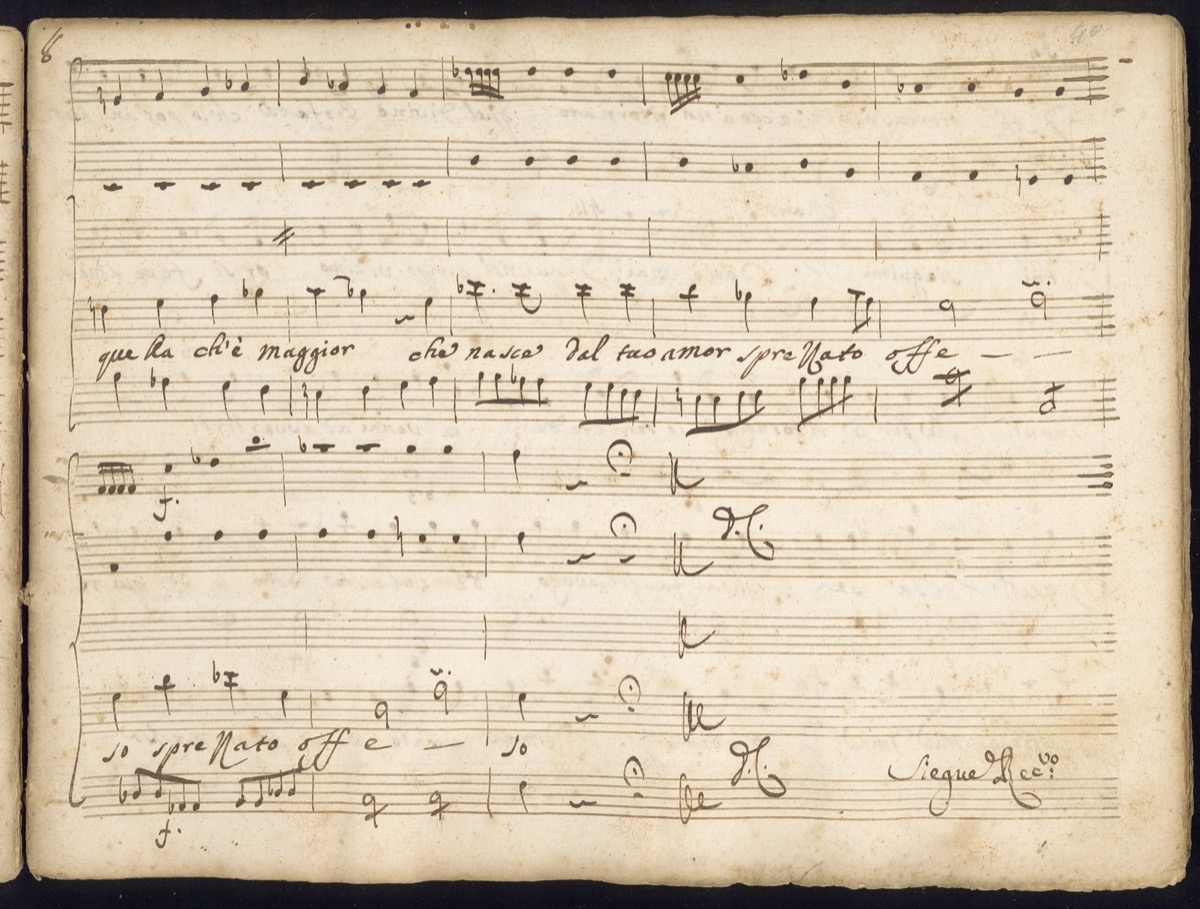 8
quella ch'è maggior che nasce dal tuo amor sprezzato offe — —
f.
D.C.
so sprezzato offe — so
D.C. Siegue Rec.vo
f.